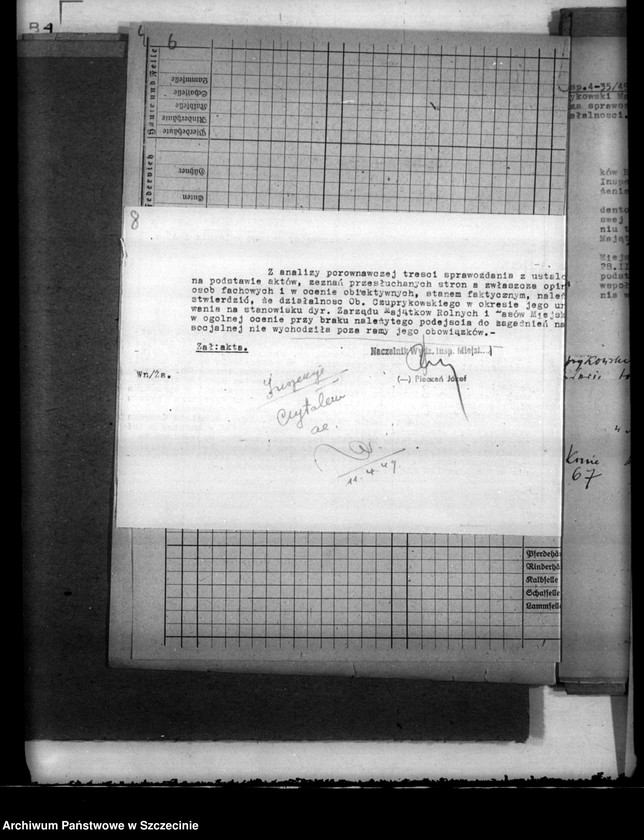 B4
4 6
Haute und Felle
Lammfelle
Schaffelle
Kalbfelle
Rinderhäute
Pferdehäute
Federvieh
Hühner
Enten
sp.4-35/4
ykowski
za sprawoz
ałalnosci.
ków R
Inspe
dento
swej
niu t
Mająt
Miejs
28.II
podst
współ
nia w
8
Z analizy porownawczej tresci sprawozdania z ustalo
na podstawie aktów, zeznań przesłuchanych stron a zwłaszcza opin
osob fachowych i w ocenie obiektywnych, stanem faktycznym, należ
stwierdzić, że działalnosc Ob. Czuprykowskiego w okresie jego urz
wania na stanowisku dyr. Zarządu Majątkow Rolnych i Lasów Miejsk
w ogolnej ocenie przy braku należytego podejscia do zagadnień na
socjalnej nie wychodziła poza ramy jego obowiązków.-
Zał:akta.
Naczelnik Wydz. Insp. Miejsk.
(—) Pieczeń Józef
Wn/Za.
Inspekcje
Czytałem
aa.
11.4.49
67
Pferdehä
Rinderhä
Kalbfelle
Schaffelle
Lammfelle
Archiwum Państwowe w Szczecinie